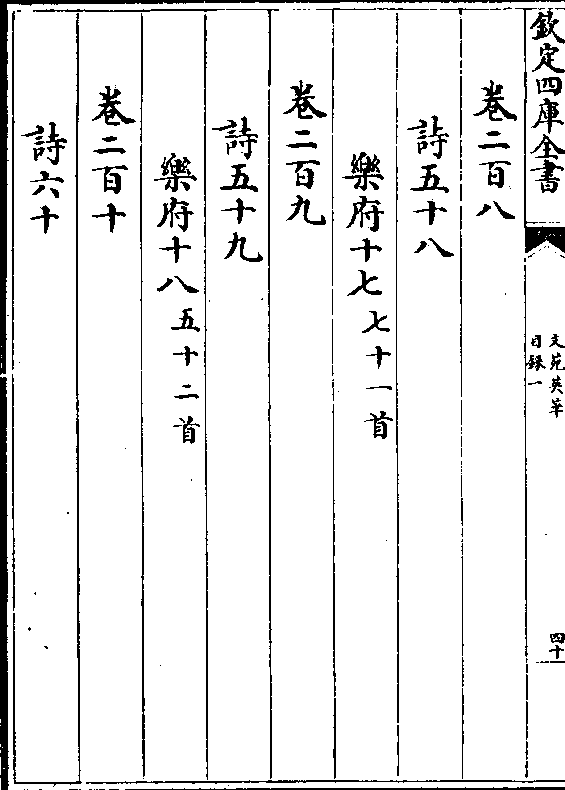 欽定四庫全書
文苑英華
目録一
四十
卷二百八
詩五十八
樂府十七七十一首
卷二百九
詩五十九
樂府十八五十二首
卷二百十
詩六十